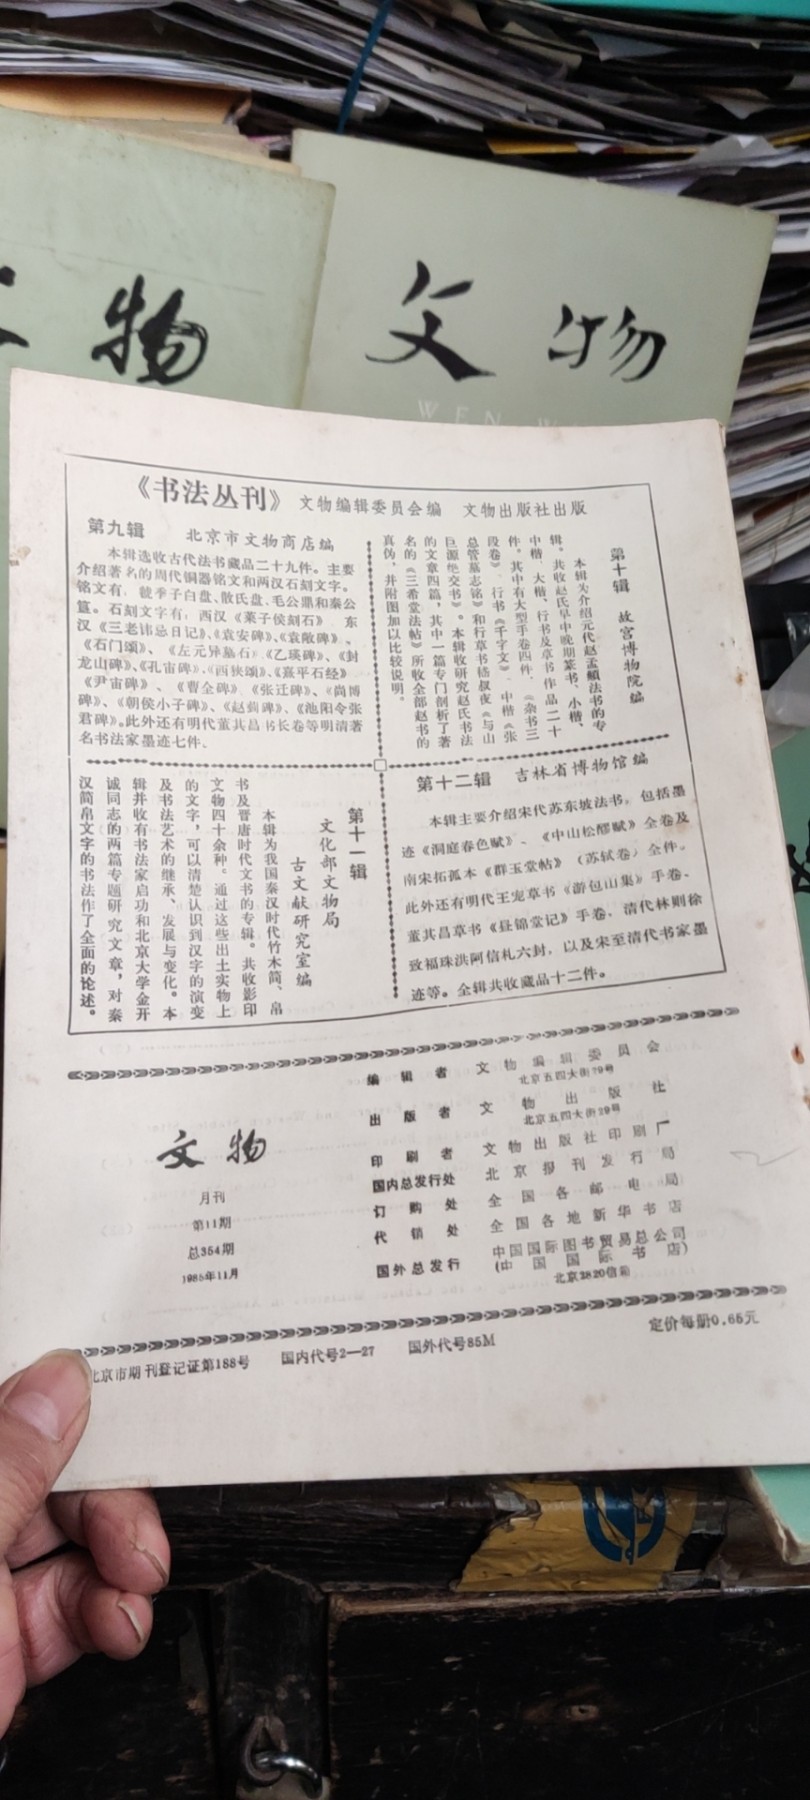 物
文物
WEN W
《书法丛刊》 文物编辑委员会编 文物出版社出版
第九辑 北京市文物商店编
本辑选收古代法书藏品二十九件。主要
介绍著名的周代铜器铭文和两汉石刻文字。
铭文有：虢季子白盘、散氏盘、毛公鼎和秦公
簋。石刻文字有：西汉《莱子侯刻石》 东
汉《三老讳忌日记》、《袁安碑》、《袁敞碑》、
《石门颂》、《左元异墓石》、《乙瑛碑》、《封
龙山碑》、《孔宙碑》、《西狭颂》、《熹平石经》
《尹宙碑》、《曹全碑》、《张迁碑》、《尚博
碑》、《朝侯小子碑》、《赵菿碑》、《池阳令张
君碑》。此外还有明代董其昌书长卷等明清著
名书法家墨迹七件。
第十辑 故宫博物院编
本辑为介绍元代赵孟頫法书的专
辑。共收赵氏早中晚期篆书、小楷、
中楷、大楷、行书及草书作品二十
件。其中有大型手卷四件，《杂书三
段卷》、行书《千字文》、中楷《张
总管墓志铭》和行草书嵇叔夜《与山
巨源绝交书》。本辑收研究赵氏书法
的文章四篇，其中一篇专门剖析了著
名的《三希堂法帖》所收全部赵书的
真伪，并附图加以比较说明。
第十一辑
文化部文物局
古文献研究室编
本辑为我国秦汉时代竹木简、帛
书及晋唐时代文书的专辑。共收影印
文物四十余种。通过这些出土实物上
的文字，可以清楚认识到汉字的演变
及书法艺术的继承、发展与变化。本
辑并收有书法家启功和北京大学金开
诚同志的两篇专题研究文章，对秦
汉简帛文字的书法作了全面的论述。
第十二辑 吉林省博物馆编
本辑主要介绍宋代苏东坡法书。包括墨
迹《洞庭春色赋》、《中山松醪赋》全卷及
南宋拓孤本《群玉堂帖》（苏轼卷）全件。
此外还有明代王宠草书《游包山集》手卷、
董其昌草书《昼锦堂记》手卷，清代林则徐
致福珠洪阿信札六封，以及宋至清代书家墨
迹等。全辑共收藏品十二件。
文物
月刊
第11期
总354期
1985年11月
编辑者 文物编辑委员会
北京五四大街29号
出版者 文物出版社
北京五四大街29号
印刷者 文物出版社印刷厂
国内总发行处 北京报刊发行局
订购处 全国各邮电局
代销处 全国各地新华书店
国外总发行 中国国际图书贸易总公司
(中国国际书店)
北京2820信箱
北京市期刊登记证第188号 国内代号2—27 国外代号85M 定价每册0.65元